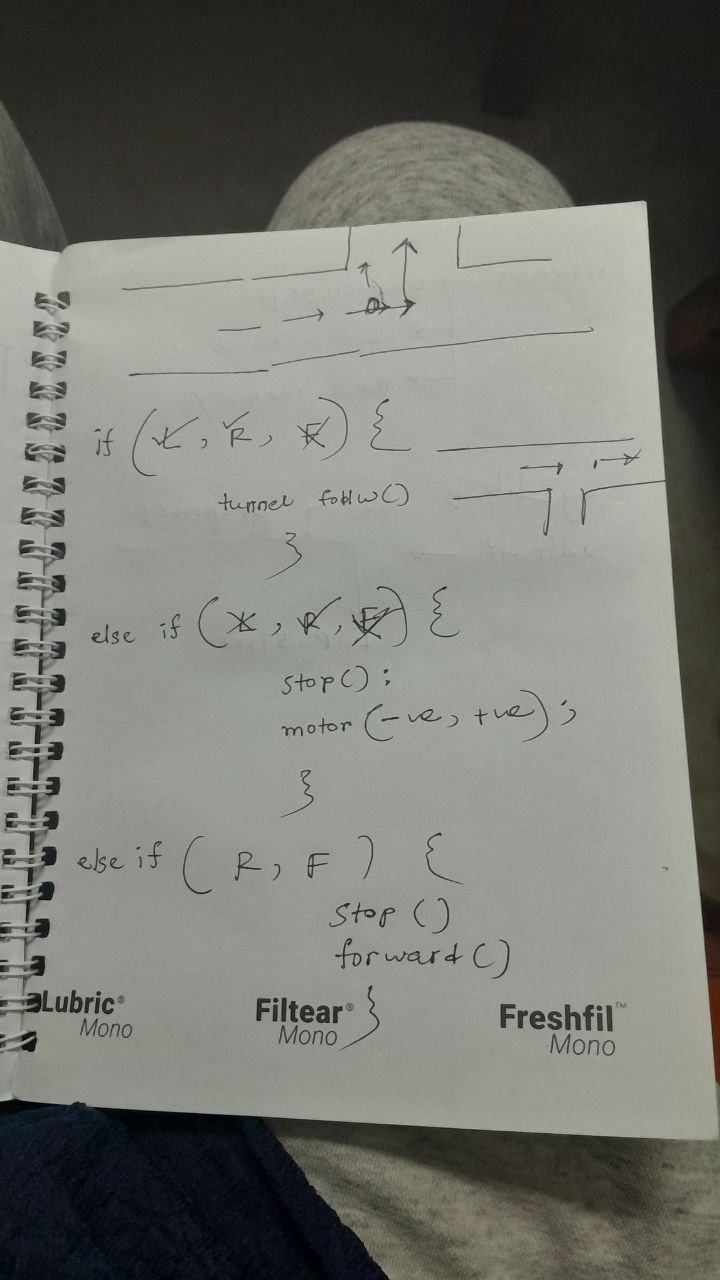 if (L, R, F) {
tunnel follow()
}
else if (L, R, F) {
stop();
motor (-ve, +ve);
}
else if ( R, F ) {
stop ()
forward ()
}
Lubric® Filtear® Freshfil™
Mono Mono Mono